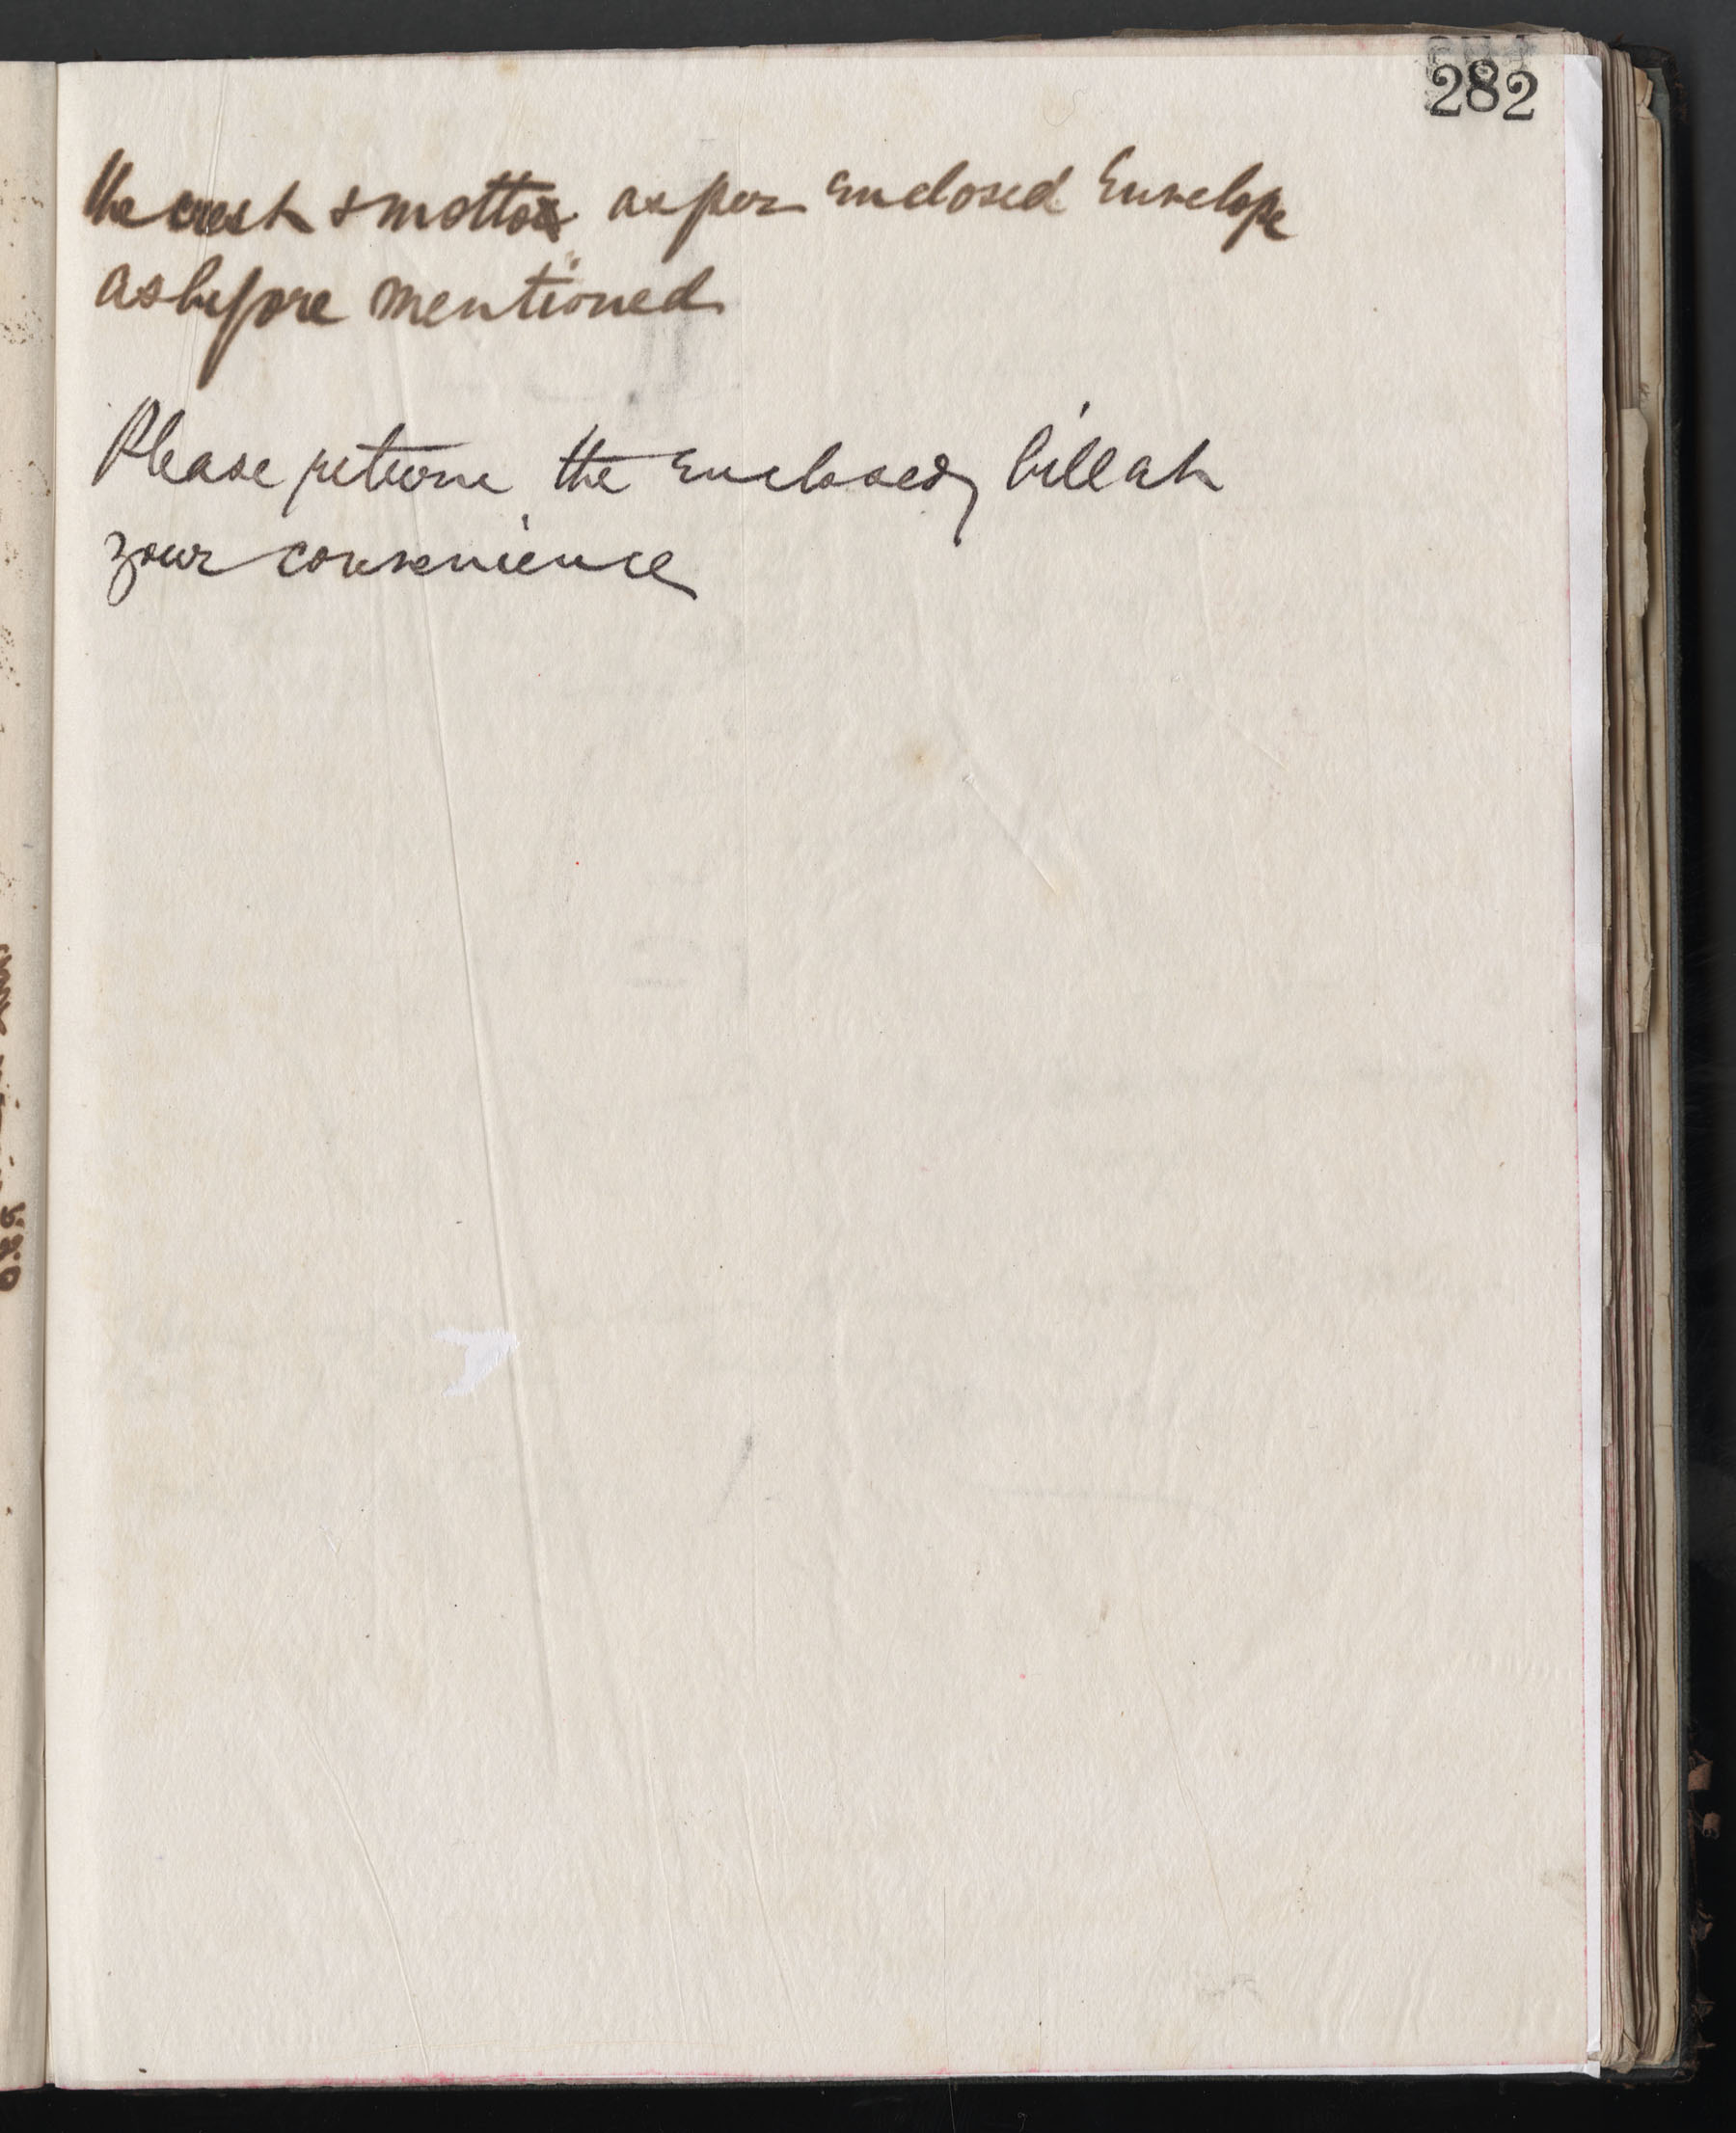 282
the crest & motto as per Enclosed Envelope
as before mentioned
Please return the Enclosed bill at
your convenience